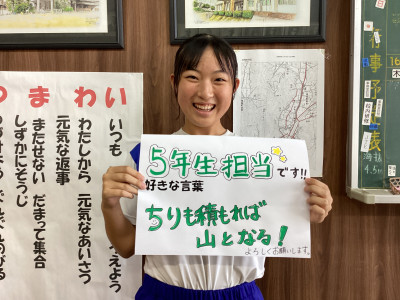 つまわい
いつも
えよう
わたしから 元気なあいさつ
元気な返事
またせない だまって集合
しずかにそうじ
5年生担当です!!
好きな言葉
ちりも積もれば
山となる!
よろしくお願いします。
行事予定表
16
木